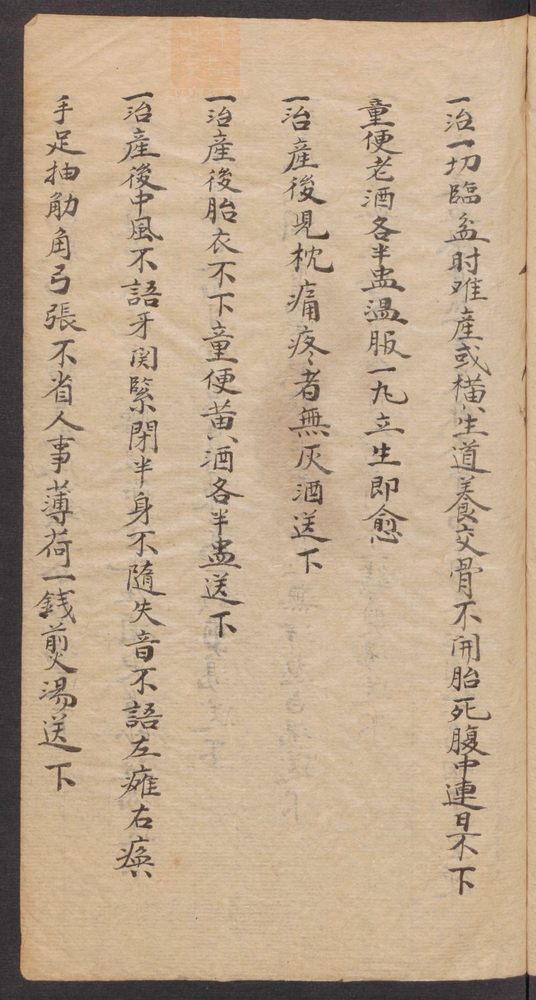 一治一切臨盆时难產或橫生道養交骨不開胎死腹中連日不下
童便老酒各半盅温服一九立生即愈
一治產後児枕痛疼者無灰酒送下
一治產後胎衣不下童便黄酒各半盅送下
一治產後中風不語牙関緊閉半身不隨失音不語左癱右瘓
手足抽觔角弓張不省人事薄荷一錢煎湯送下